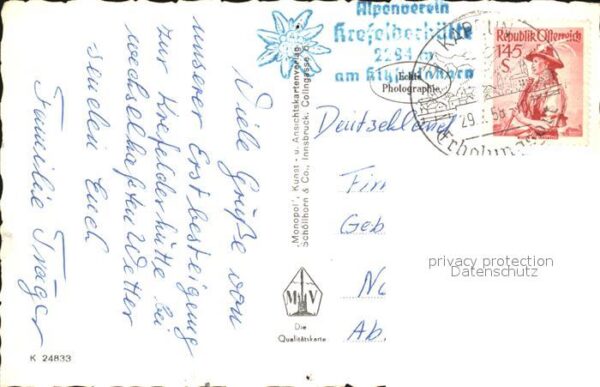 Viele Grüße von
unserer Erstbesteigung
zur Krefelderhütte bei
wechselhaften Wetter
senden Euch
Familie Träger
K 24833
"Monopol", Kunst- u. Ansichtskartenverlag
Schöllhorn & Co., Innsbruck, Colingasse
M V
Die
Qualitätskarte
Alpenverein
Krefelderhütte
2294 m
am Kitzsteinhorn
Echte
Photographie
KAPRUN
29.
Erholungs
Republik Österreich
1'45
S
Deutschland
Fir
Geb
No
Ab.
privacy protection
Datenschutz